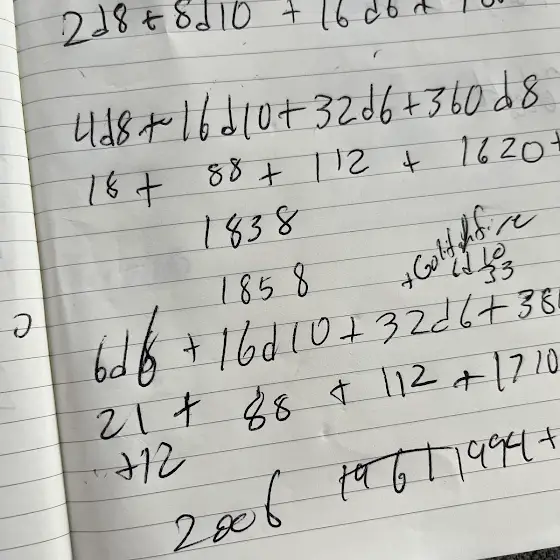 2d8 + 8d10 + 16d6 +
4d8 + 16d10 + 32d6 + 360d8
18 + 88 + 112 + 1620 +
1838
1858
+Goldfire
1d10
33
6d6 + 16d10 + 32d6 + 38
21 + 88 + 112 + 1710
+12
2006 1961 1994 +